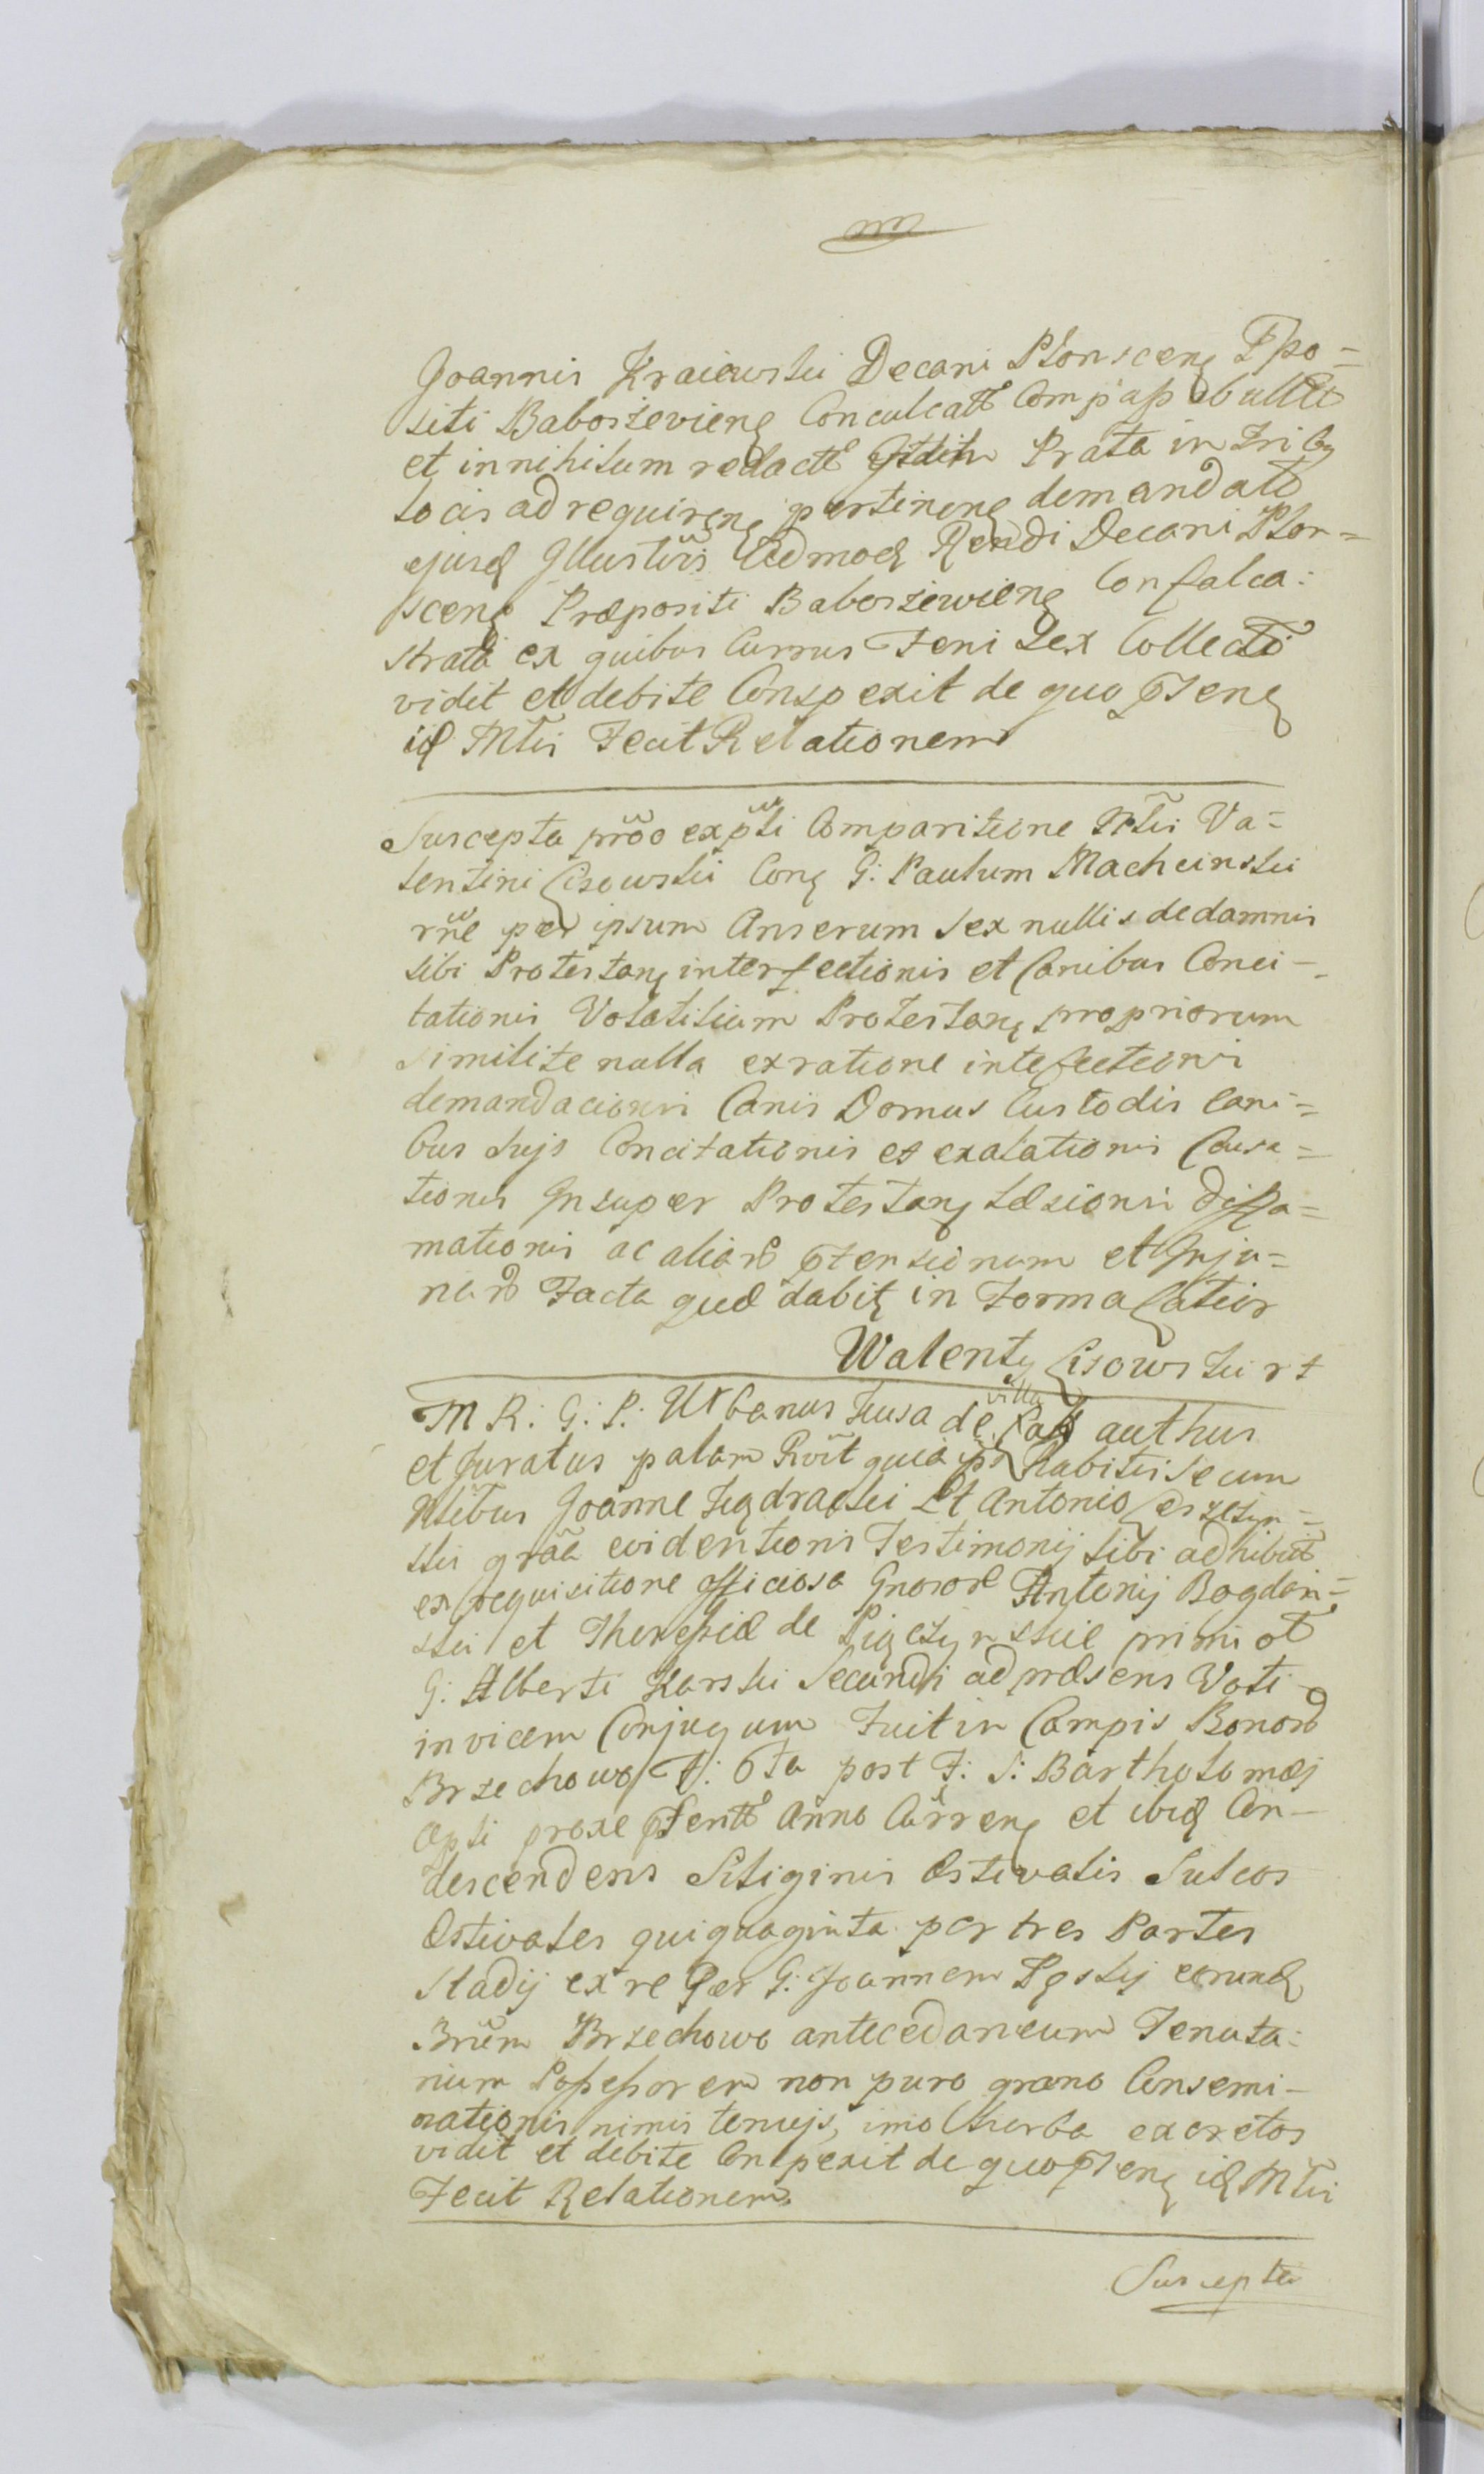 Joannis Kraiewski Decani Płonsceng Ppo=
siti Baboszevieng Conculcatt Comp'ap
et in nihilum redactt Prata in Tribg
locis ad requireng pertineng demandato
ejusd Illustris Admod Rendi Decani Płon=
sceng Præpositi Baboszewieng Confalca:
strata ex quibus Currus Feni Sex Collecto
vidit et debite Conspexit de quo pteng
id Mtri Fecit Relationem
Suscepta prõo expti Comparitione Mtri Va=
lentini Lisowski Cong G: Paulum Macheinski
rñe per ipsum Anserum Sex nullis de damnis
sibi Protestang interfectionis et Canibus Conci-
tationis Volatilium Protestang propriorum
similite nulla ex ratione intefectioni
demandacioni Canis Domus Custodis Cani=
bus Sujs Concitationis et exalationis Causa=
tionis Insuper Protestang Læsionis diffa=
mationis ac aliard ptensionum et Inju=
riard Facta quæ dabitg in Forma Latior
Walenty Lisowski rt
M R: G: P: Urbanus Kusa de villa authus
et Juratus palam Rvit quia ps habitis secum
Nlibus Joanne Jędracki Et Antonio Leszczyn=
ski grãa evidentioris Testimonij sibi adhibit
ex requisitione officiosa Gnosord Antonij Bogdan=
ski et Theresiæ de Pigczynskie primi ot
G: Alberti Karski Secundi ad præsens Voti
invicem Conjugum Fuit in Campis Bonord
Brzechowo F: 6ta post F: S: Bartholomæi
Apli proxe pterito Anno Curreng et ibid Con-
descendens Siliginis Æstivalis Sulcos
Æstivales quiquaginta per tres Partes
Stadij ex re per G: Joannem Pęskij eorund
Brum Brzechowo antecedaneum Tenuta:
rium Possessorem non puro grano Consemi-
nationis nimis tenujs, imo herba excretos
vidit et debite Conspexit de quo pteng id Mtri
Fecit Relationem
Suscepta